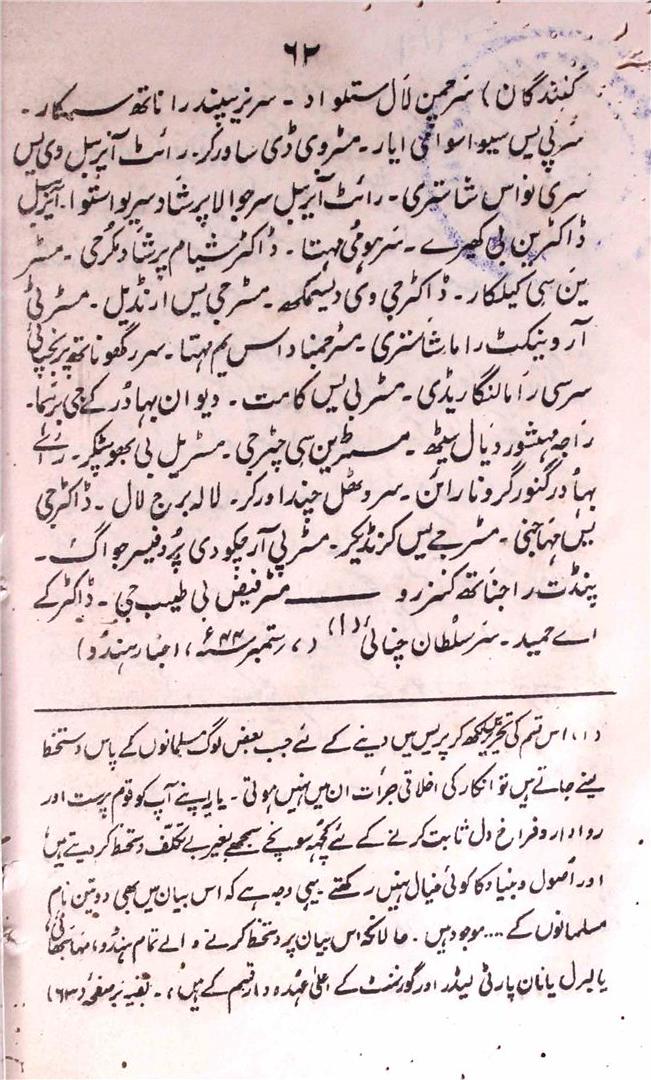 ۶۲
کنندگان) سرچمن لال ستلواد - سرنرسپندرا ناتھ سرکار -
سرپی یس سیوا سوامی ایار - مسٹر وی ڈی ساورکر - رائٹ آنریبل وی یس
سری نواس شاستری - رائٹ آنریبل سرجوالا پرشاد سریواستوا - آنریبل
ڈاکٹر ین بی کھرے - سر ہومی مہتا - ڈاکٹر شیام پرشاد مکرجی - مسٹر
ین سی کیلکار - ڈاکٹر جی وی دیسمکھ - مسٹر جی یس ارنڈیل - مسٹر ٹی
آر وینکٹ راما شاستری - مسٹر جمناداس یم مہتا - سر رگھوناتھ پرنجپائی
سرسی رامالنگا ریڈی - مسٹر بی یس کامت - دیوان بہادر کے جی برہما -
راجہ مہیشور دیال سیٹھ - مسٹر ین سی چٹرجی - مسٹر یل بی بھوپٹکر - رائے
بہادر گنور گرونارائن - سر وٹھل چنداورکر - لالہ برج لال - ڈاکٹر جی
یس مہاجنی - مسٹر جے یس کرنڈیکر - مسٹر پی آر چکودی پروفیسر جواگ -
پنڈت راجناتھ کنزرو ——— مسٹر فیض بی طیب جی - ڈاکٹر کے
اے حمید - سر سلطان چنائی (۱) (، ستمبر ۴۴ء، اخبار ہندو)
(۱) اس قسم کی تحریر لکھ کر پریس میں دینے کے لئے جب بعض لوگ مسلمانوں کے پاس دستخط
لینے جاتے ہیں تو انکار کی اخلاقی جرات ان میں نہیں ہوتی - یا اپنے آپ کو قوم پرست اور
روادار و فراخ دل ثابت کرنے کے لئے کچھ سونچے سمجھے بغیر بے تکلف دستخط کر دیتے ہیں
اور اصول و بنیاد کا کوئی خیال نہیں رکھتے - یہی وجہ ہے کہ اس بیان میں بھی دو تین نام
مسلمانوں کے .... موجود ہیں - حالانکہ اس بیان پر دستخط کرنے والے تمام ہندو، مہاسبھائی،
یا لبرل یا نان پارٹی لیڈر اور گورنمنٹ کے اعلیٰ عہدہ دار قسم کے ہیں، - بقیہ بر صفحہ (۶۳)